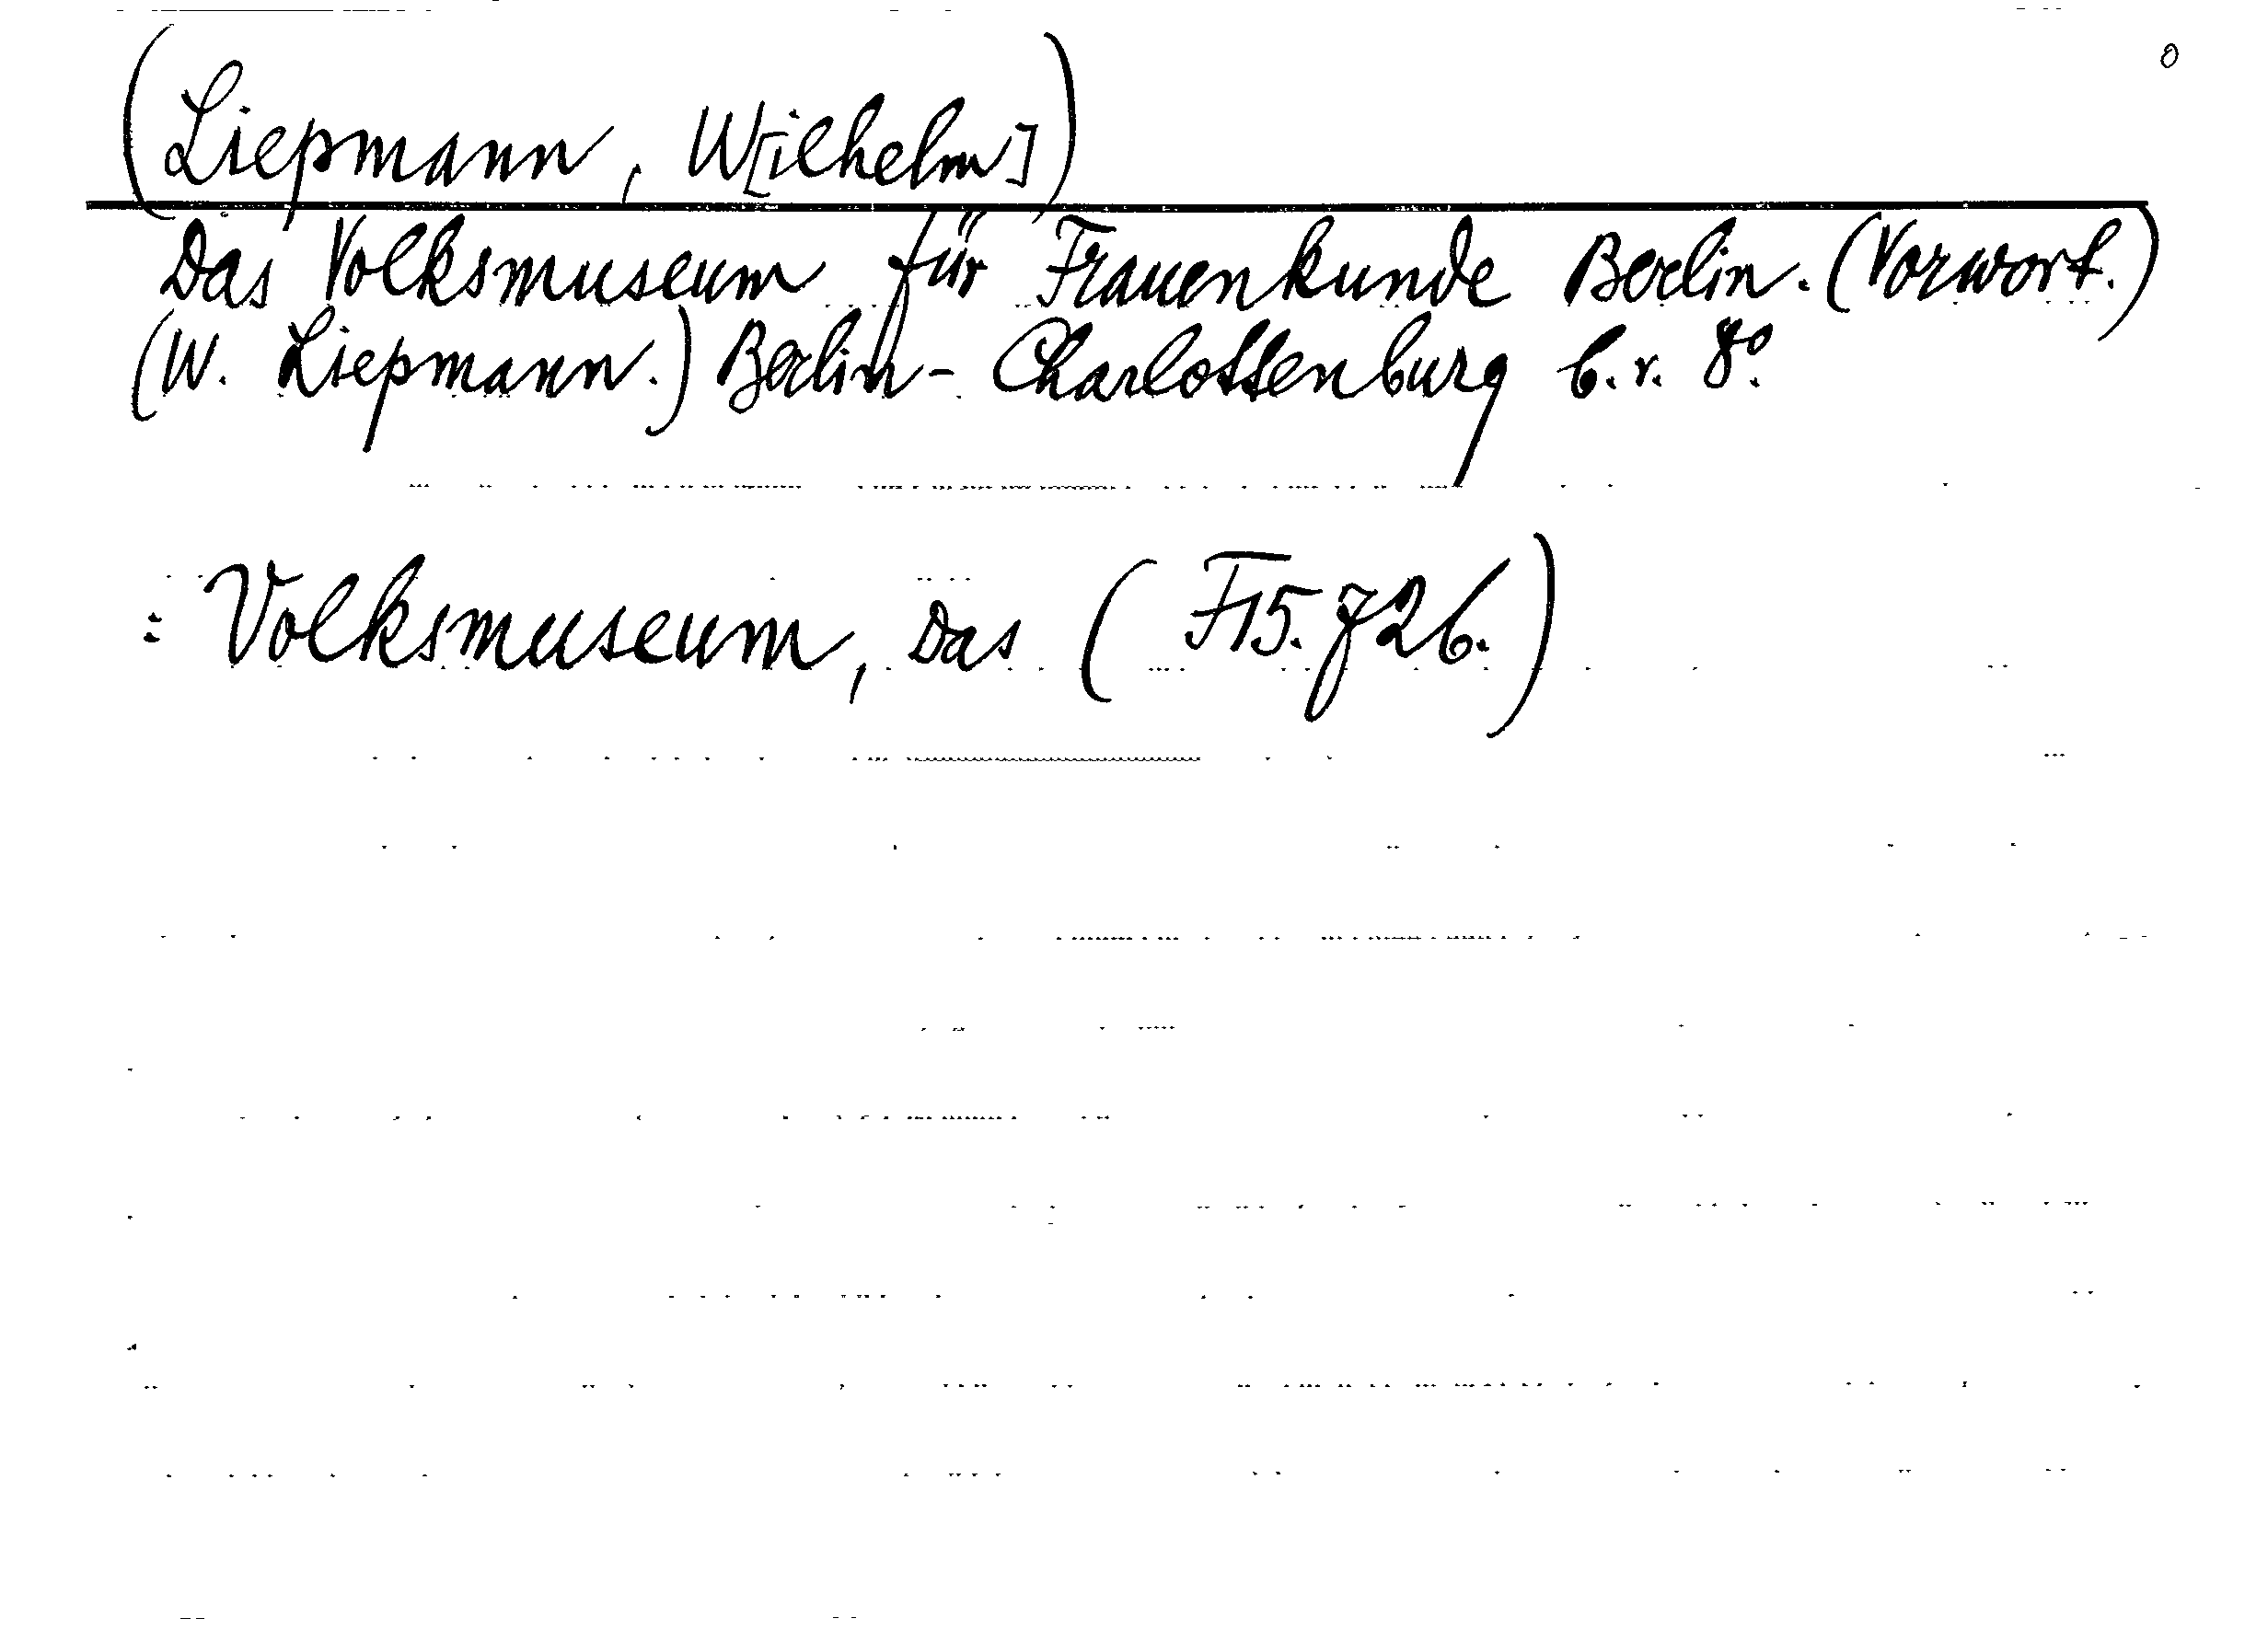 (Liepmann, W[ilhelm])
Das Volksmuseum für Frauenkunde Berlin. (Vorwort.)
(W. Liepmann.) Berlin-Charlottenburg b.r. 8°.
: Volksmuseum, Das (F15.J26.)